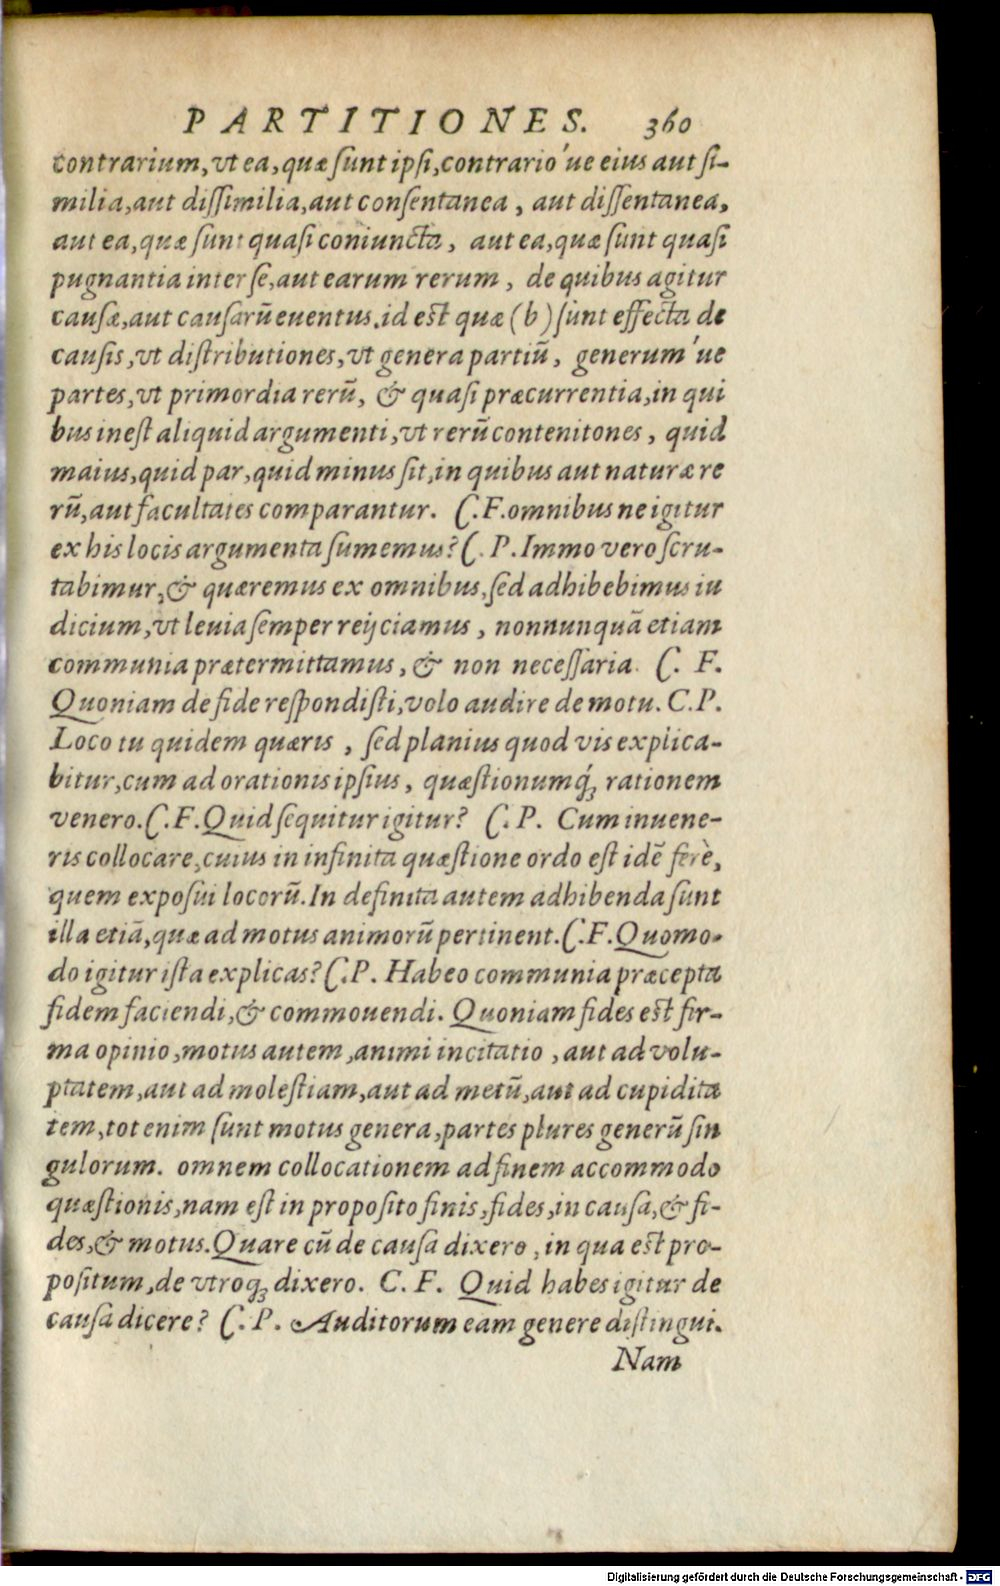 PARTITIONES. 360
contrarium, vt ea, quæ ſunt ipſi, contrario'ue eius aut ſi-
milia, aut diſſimilia, aut conſentanea, aut diſſentanea,
aut ea, quæ ſunt quaſi coniuncta, aut ea, quæ ſunt quaſi
pugnantia inter ſe, aut earum rerum, de quibus agitur
cauſæ, aut cauſarū euentus. id est quæ (b) ſunt effecta de
cauſis, vt diſtributiones, vt genera partiū, generum'ue
partes, vt primordia rerū, & quaſi præcurrentia, in qui
bus ineſt aliquid argumenti, vt rerū contenitones, quid
maius, quid par, quid minus ſit, in quibus aut naturæ re
rū, aut facultates comparantur. C.F. omnibus ne igitur
ex his locis argumenta ſumemus? C. P. Immo vero ſcru-
tabimur, & quæremus ex omnibus, ſed adhibebimus iu
dicium, vt leuia ſemper reijciamus, nonnunquā etiam
communia prætermittamus, & non neceſſaria. C. F.
Quoniam de fide reſpondiſti, volo audire de motu. C.P.
Loco tu quidem quæris, ſed planius quod vis explica-
bitur, cum ad orationis ipſius, quæſtionumq́; rationem
venero. C.F. Quid ſequitur igitur? C. P. Cum inuene-
ris collocare, cuius in infinita quæſtione ordo eſt idē ferè,
quem expoſui locorū. In definita autem adhibenda ſunt
illa etiā, quæ ad motus animorū pertinent. C.F. Quomo-
do igitur iſta explicas? C.P. Habeo communia præcepta
fidem faciendi, & commouendi. Quoniam fides est fir-
ma opinio, motus autem, animi incitatio, aut ad volu-
ptatem, aut ad moleſtiam, aut ad metū, aut ad cupidita
tem, tot enim ſunt motus genera, partes plures generū ſin
gulorum. omnem collocationem ad finem accommodo
quæſtionis, nam est in propoſito finis, fides, in cauſa, & fi-
des, & motus. Quare cū de cauſa dixero, in qua est pro-
poſitum, de vtroq; dixero. C. F. Quid habes igitur de
cauſa dicere? C. P. Auditorum eam genere diſtingui.
Nam
Digitalisierung gefördert durch die Deutsche Forschungsgemeinschaft - DFG